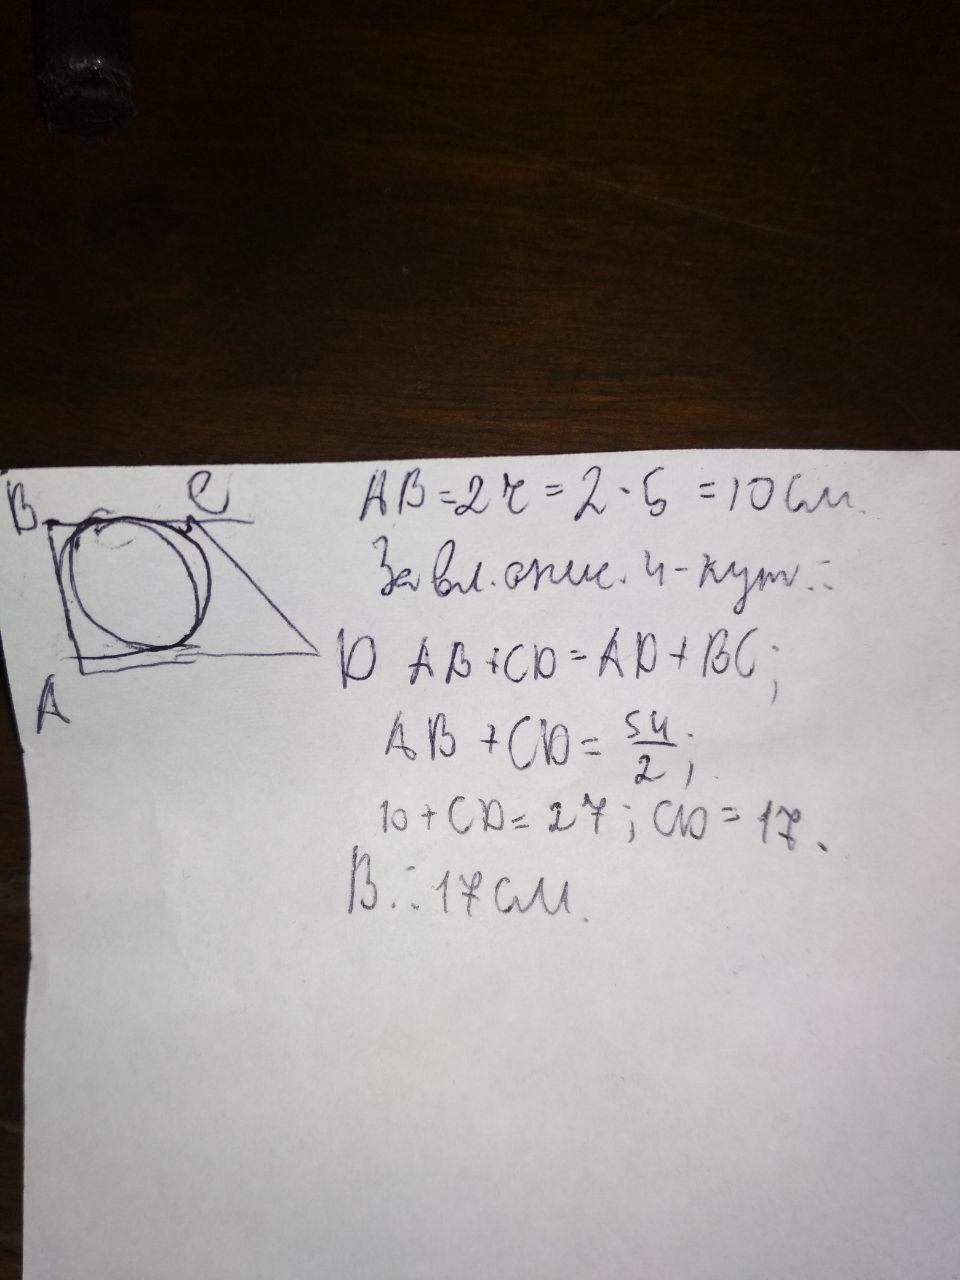 B C
A D
AB = 2r = 2 · 5 = 10 см.
За вл. опис. 4-кут.:
AB + CD = AD + BC;
AB + CD = 54/2;
10 + CD = 27; CD = 17.
В.: 17 см.